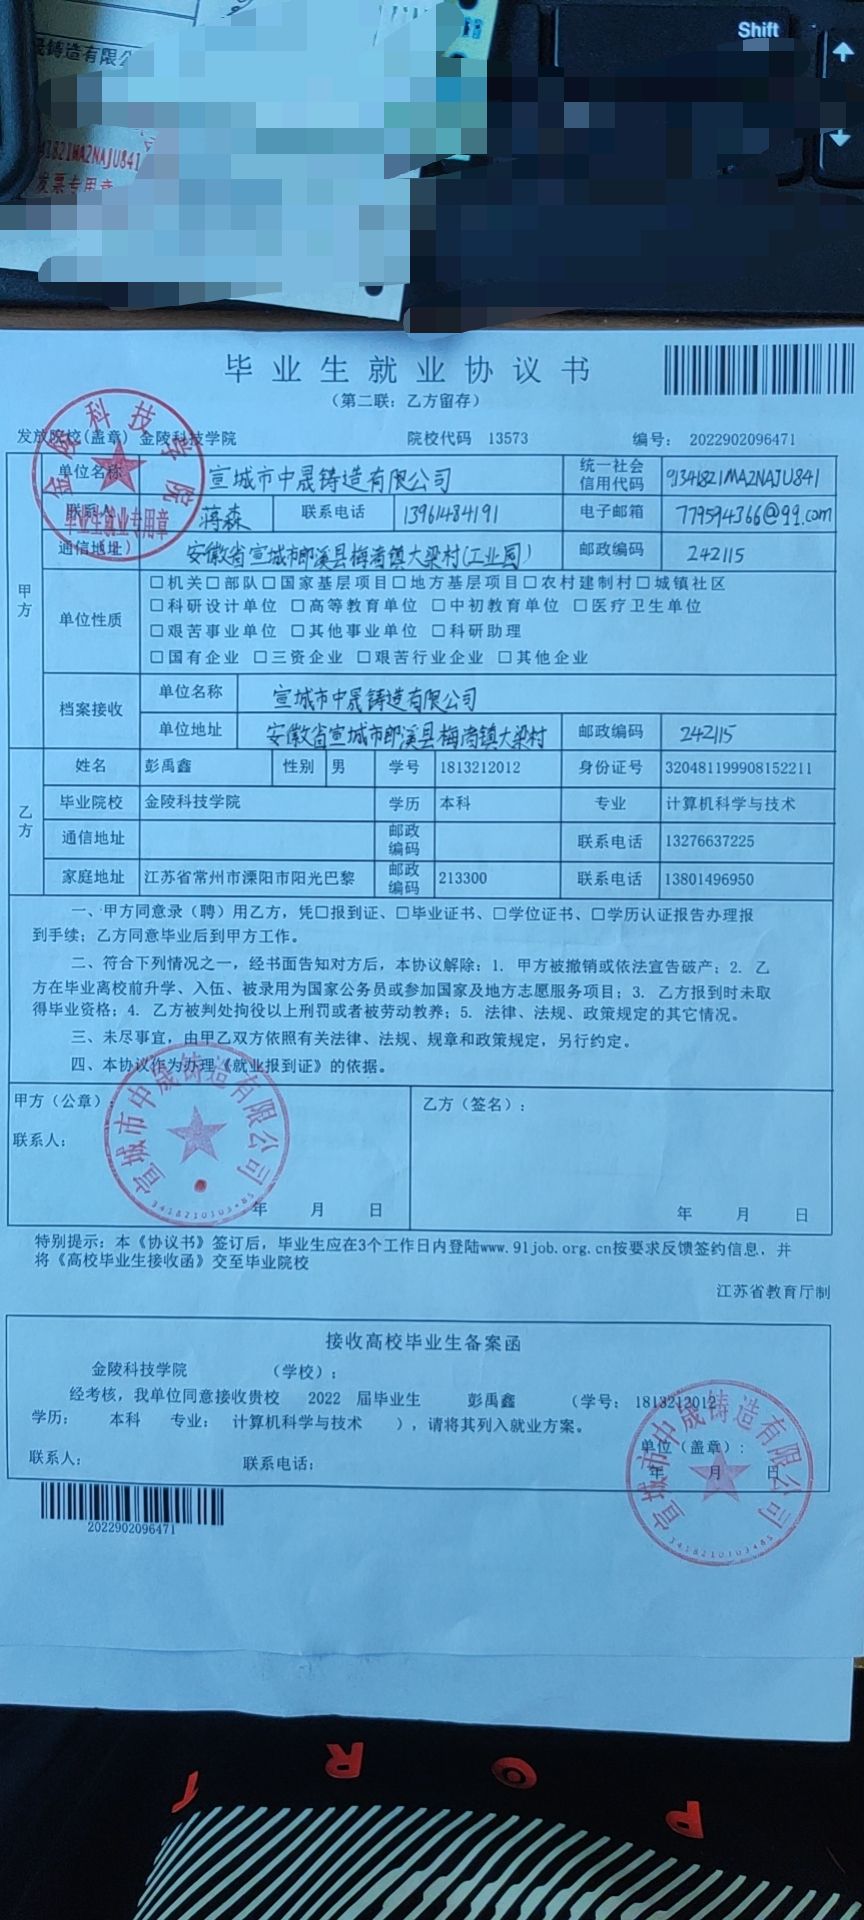 Shift
晟鋳造有限公
41821MA2NAJU841
发票专用章
毕业生就业协议书
（第二联：乙方留存）
发放院校(盖章) 金陵科技学院 院校代码 13573 编号： 2022902096471
金陵科技学院
毕业生就业专用章
甲方
单位名称 宣城市中晟铸造有限公司 统一社会信用代码 91341821MA2NAJU841
联系人 蒋森 联系电话 13961484191 电子邮箱 779594366@qq.com
通信地址 安徽省宣城市郎溪县梅渚镇大梁村(工业园) 邮政编码 242115
单位性质
□机关□部队□国家基层项目□地方基层项目□农村建制村□城镇社区
□科研设计单位 □高等教育单位 □中初教育单位 □医疗卫生单位
□艰苦事业单位 □其他事业单位 □科研助理
□国有企业 □三资企业 □艰苦行业企业 □其他企业
档案接收
单位名称 宣城市中晟铸造有限公司
单位地址 安徽省宣城市郎溪县梅渚镇大梁村 邮政编码 242115
乙方
姓名 彭禹鑫 性别 男 学号 1813212012 身份证号 320481199908152211
毕业院校 金陵科技学院 学历 本科 专业 计算机科学与技术
通信地址 邮政编码 联系电话 13276637225
家庭地址 江苏省常州市溧阳市阳光巴黎 邮政编码 213300 联系电话 13801496950
一、甲方同意录（聘）用乙方，凭□报到证、□毕业证书、□学位证书、□学历认证报告办理报
到手续；乙方同意毕业后到甲方工作。
二、符合下列情况之一，经书面告知对方后，本协议解除：1. 甲方被撤销或依法宣告破产；2. 乙
方在毕业离校前升学、入伍、被录用为国家公务员或参加国家及地方志愿服务项目；3. 乙方报到时未取
得毕业资格；4. 乙方被判处拘役以上刑罚或者被劳动教养；5. 法律、法规、政策规定的其它情况。
三、未尽事宜，由甲乙双方依照有关法律、法规、规章和政策规定，另行约定。
四、本协议作为办理《就业报到证》的依据。
甲方（公章）： 乙方（签名）：
联系人：
宣城市中晟铸造有限公司
3418210103485
年 月 日 年 月 日
特别提示：本《协议书》签订后，毕业生应在3个工作日内登陆www.91job.org.cn按要求反馈签约信息，并
将《高校毕业生接收函》交至毕业院校
江苏省教育厅制
接收高校毕业生备案函
金陵科技学院 （学校）：
经考核，我单位同意接收贵校 2022 届毕业生 彭禹鑫 （学号： 1813212012
学历： 本科 专业： 计算机科学与技术 ），请将其列入就业方案。
单位（盖章）：
联系人： 联系电话： 年 月 日
宣城市中晟铸造有限公司
3418210103485
2022902096471
P O R T